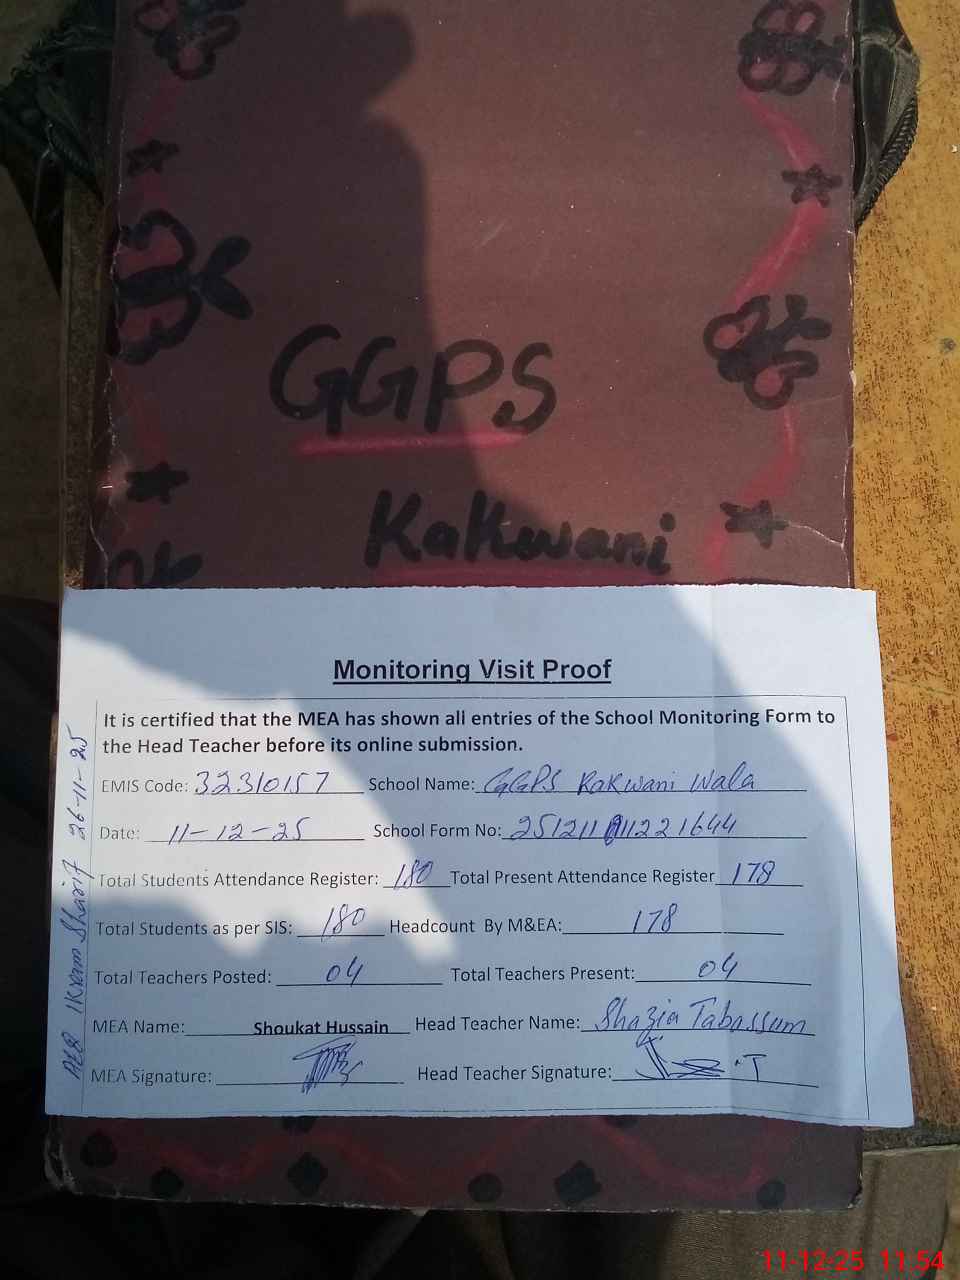 GGPS
Kakwani
Monitoring Visit Proof
It is certified that the MEA has shown all entries of the School Monitoring Form to
the Head Teacher before its online submission.
EMIS Code: 32310157 School Name: GGPS Kakwani Wala
Date: 11-12-25 School Form No: 251211011221644
Total Students Attendance Register: 180 Total Present Attendance Register 178
Total Students as per SIS: 180 Headcount By M&EA: 178
Total Teachers Posted: 04 Total Teachers Present: 04
MEA Name: Shoukat Hussain Head Teacher Name: Shazia Tabassum
MEA Signature: Head Teacher Signature:
Ikram Sharif 26-11-25
11-12-25 11:54